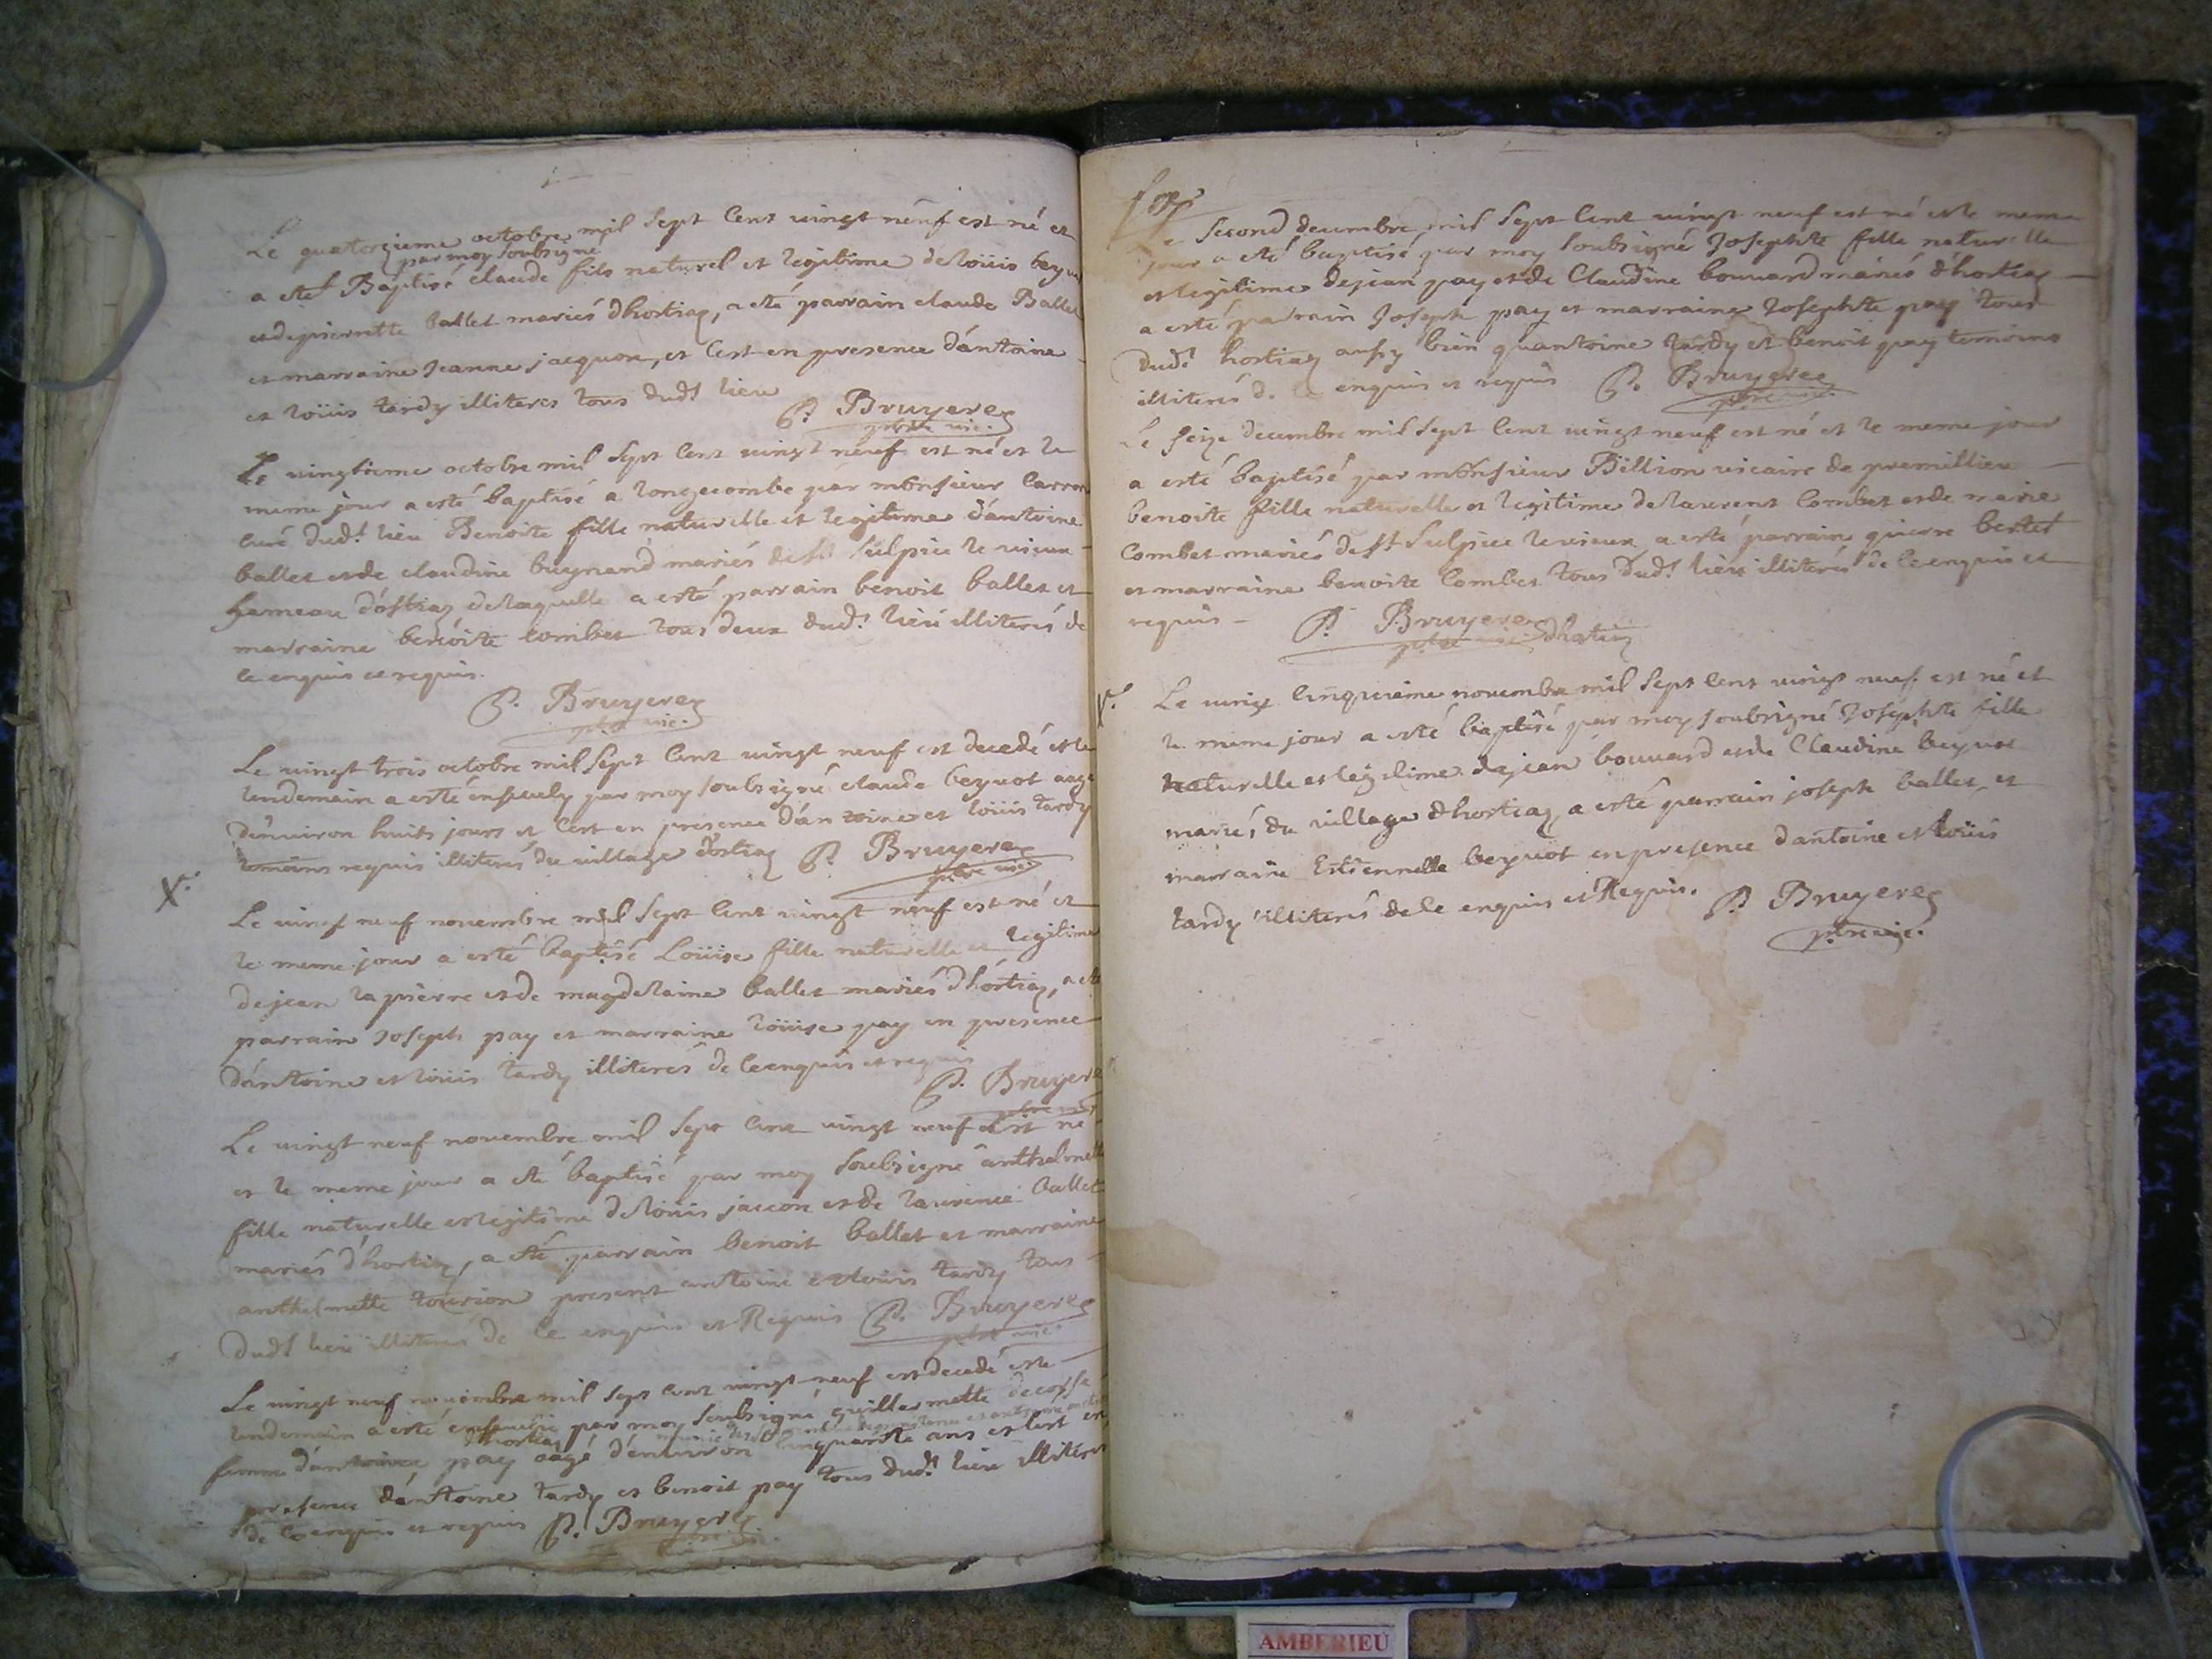 Le quatorzieme octobre mil Sept Cent vingt neuf est né et
par moy soubsigné
a eté Baptisé claude fils naturel et legitime de loüis beyuot
et de pierrette ballet mariés dhortiaz, a eté parrain claude Ballet
et marraine Jeanne jacquon, et C'est en presence d'antoine
et loüis tardy illiteres tous dud.t lieu
P. Bruyerez
pbtre vic.
Le vingtieme octobre mil Sept Cent vingt neuf est né et le
meme jour a esté baptisé a longecombe par monsieur Carron
curé dud.t lieu Benoite fille naturelle et legitime d'antoine
ballet et de claudine buynand mariés de st Sulpice le vieux
hameau d'ostiaz de laquelle a esté parrain benoit ballet et
marraine benoite combet tous deux dud.t lieu illiterés de
ce enquis et requis.
P. Bruyerez
pbtre vic.
Le vingt trois octobre mil Sept Cent vingt neuf est decedé et le
lendemain a esté ensevely par moy soubsigné claude beyuot aagé
d'environ huits jours et C'est en presence d'antoine et loüis tardy
temoins requis illiterés du village d'ostiaz P. Bruyerez
pbtre vic.
X.
Le vingt neuf novembre mil Sept Cent vingt neuf est né et
le meme jour a esté baptisé Loüise fille naturelle et legitime
de jean lapierre et de magdelaine ballet mariés d'hortiaz, a eté
parrain Joseph pay et marraine loüise pay en presence
d'antoine et loüis tardy illiterés de ce enquis et requis
P. Bruyere
pbtre vic.
Le vingt neuf novembre mil Sept Cent vingt neuf est né
et le meme jour a eté baptisé par moy soubsigné anthelmette
fille naturelle et legitime de loüis jaccon et de laurence ballet
mariés d'hortiaz, a eté parrain benoit ballet et marraine
anthelmette present antoine et loüis tardy tous
dud.t lieu illiterés de ce enquis et Requis P. Bruyerez
pbtre vic.
Le vingt neuf novembre mil Sept Cent vingt neuf est decedé et le
lendemain a esté ensevelie par moy soubsigné guillermette
d'hortiaz
femme d'antoine pay aagé d'environ Cinquante ans et C'est en
presence d'antoine tardy et benoit pay tous dud.t lieu illiterés
de ce enquis et requis P. Bruyerez
Le Second decembre mil Sept Cent vingt neuf est né et le meme
jour a eté baptisé par moy soubsigné Josephte fille naturelle
et legitime de jean pay et de Claudine bouvard mariés d'hortiaz
a esté parrain Joseph pay et marraine Josephte pay tous
dud.t hortiaz aussy bien qu'antoine tardy et benoit pay temoins
illiterés de ce enquis et requis P. Bruyerez
pbtre vic.
Le seize decembre mil Sept Cent vingt neuf est né et le meme jour
a esté baptisé par monsieur Billion vicaire de premillieu
benoite fille naturelle et legitime de laurent Combet et de marie
Combet mariés de st Sulpice le vieux a esté parrain pierre bertet
et marraine benoite Combet tous dud.t lieu illiterés de ce enquis et
requis P. Bruyerez
pbtre vic. dhortiaz
X.
Le vingt Cinquieme novembre mil Sept Cent vingt neuf est né et
le meme jour a esté baptisé par moy soubsigné Josephte fille
naturelle et legitime de jean bouvard et de Claudine beyuot
mariés du village dhortiaz, a esté parrain joseph ballet, et
marraine Estiennette beyuot en presence d'antoine et loüis
tardy illiterés de ce enquis et Requis. P. Bruyerez
pbtre vic.
AMBERIEU